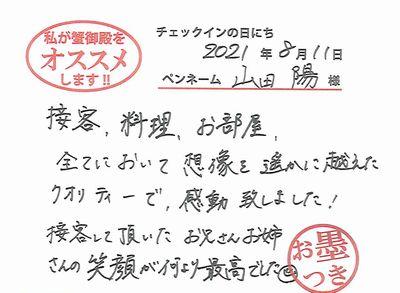 私が蟹御殿を
オススメ
します!!
チェックインの日にち
2021年8月11日
ペンネーム 山田 陽 様
接客,料理,お部屋,
全てにおいて想像を遥かに越えた
クオリティーで,感動致しました!
接客して頂いたお兄さんお姉
さんの笑顔が何より最高でした
お墨つき